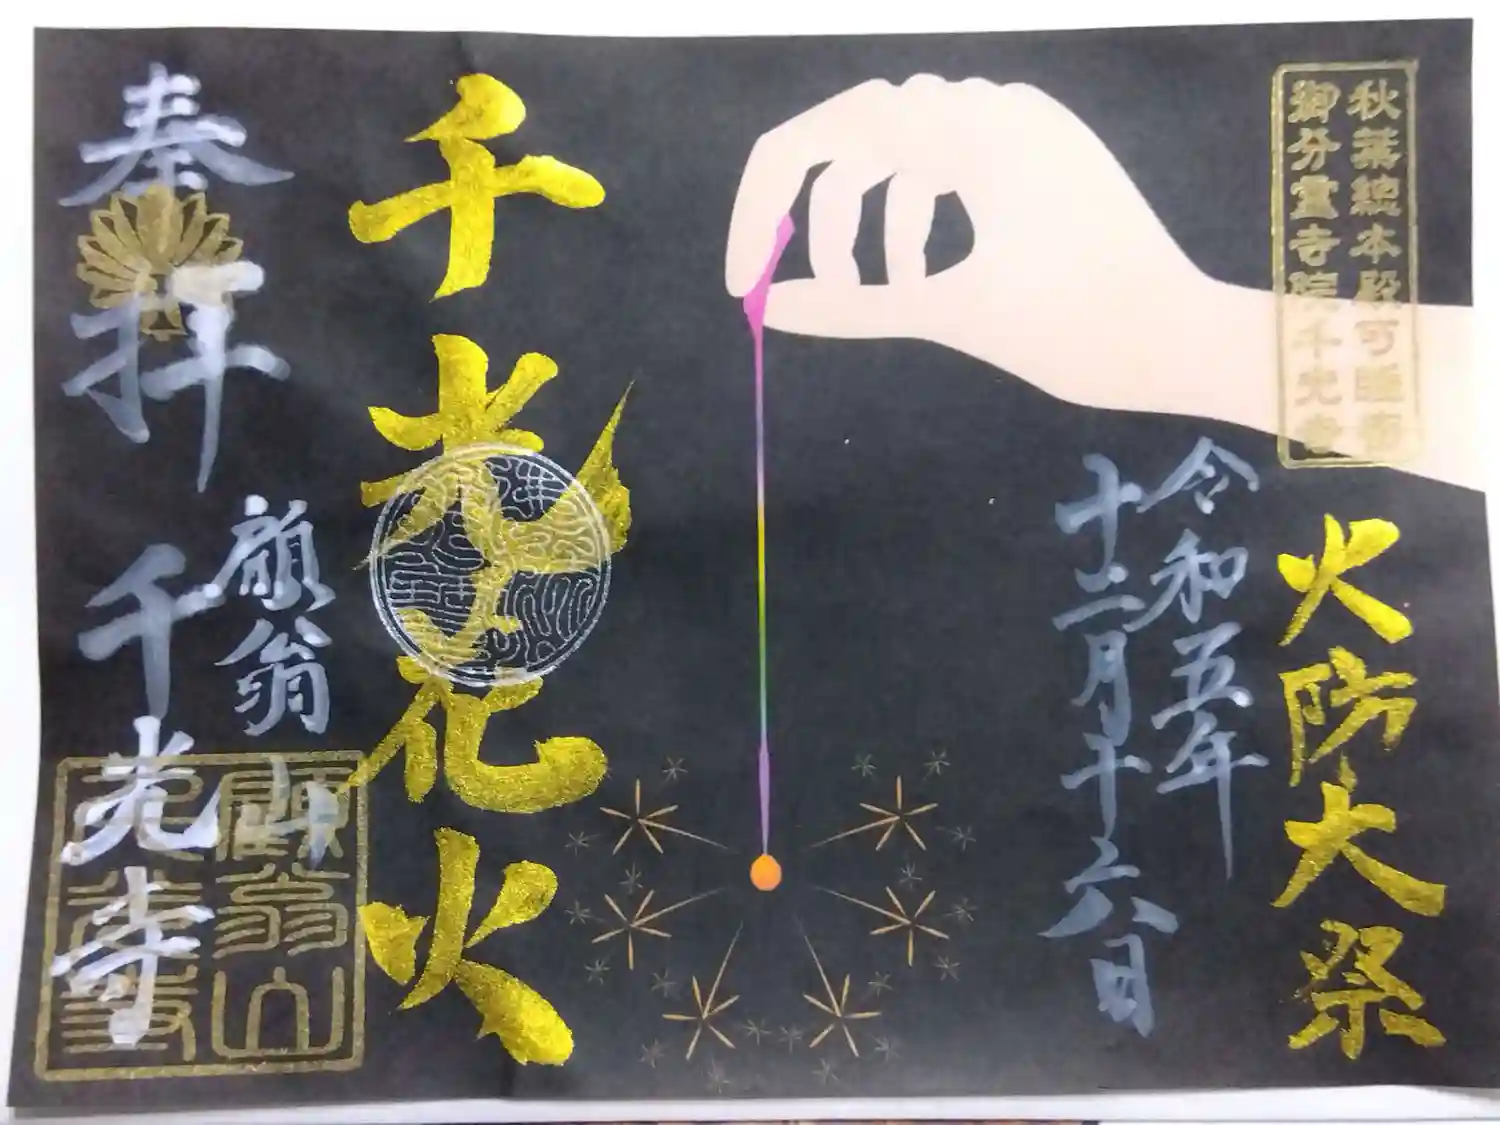 秋葉総本殿可睡斎
御分霊寺院千光寺
火防大祭
令和五年
十二月十六日
千光花火
願翁山
奉拝
千光寺
願翁山
千光寺